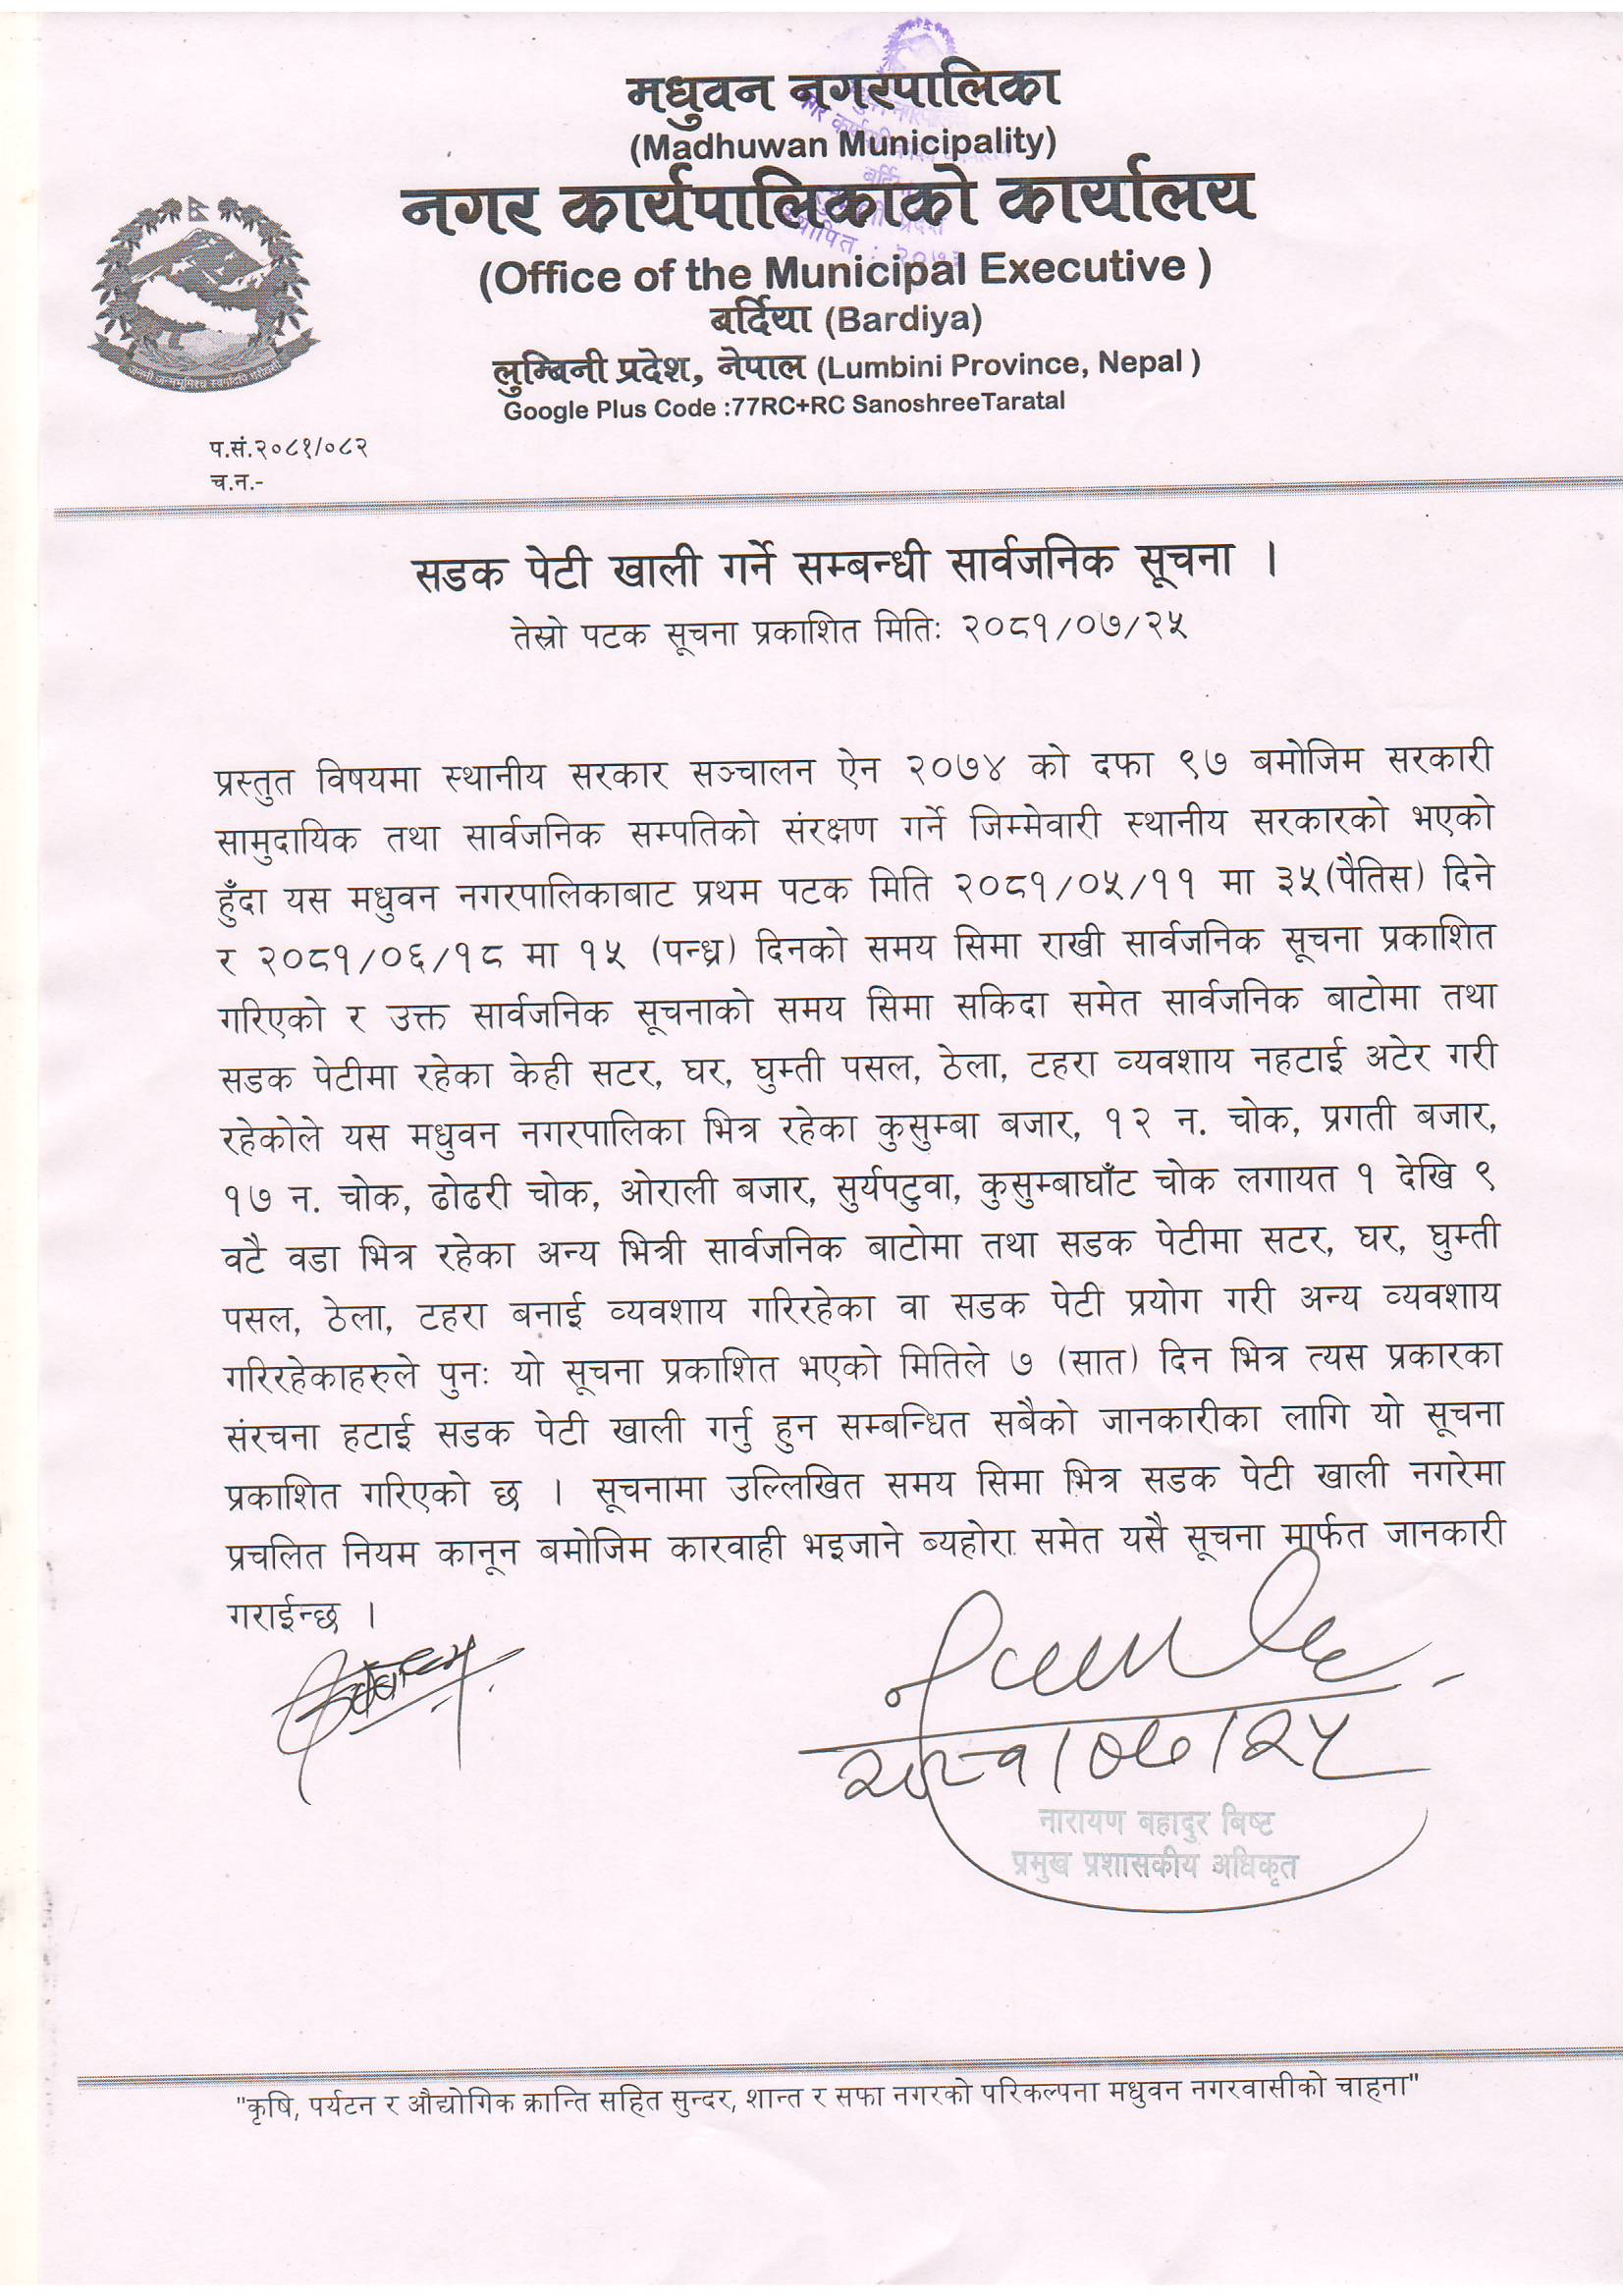 मधुवन नगरपालिका
(Madhuwan Municipality)
नगर कार्यपालिकाको कार्यालय
(Office of the Municipal Executive )
बर्दिया (Bardiya)
लुम्बिनी प्रदेश, नेपाल (Lumbini Province, Nepal )
Google Plus Code :77RC+RC SanoshreeTaratal
जननी जन्मभूमिश्च स्वर्गादपि गरीयसी
प.सं.२०८१/०८२
च.न.-
सडक पेटी खाली गर्ने सम्बन्धी सार्वजनिक सूचना ।
तेस्रो पटक सूचना प्रकाशित मितिः २०८१/०७/२५
प्रस्तुत विषयमा स्थानीय सरकार सञ्चालन ऐन २०७४ को दफा ९७ बमोजिम सरकारी
सामुदायिक तथा सार्वजनिक सम्पतिको संरक्षण गर्ने जिम्मेवारी स्थानीय सरकारको भएको
हुँदा यस मधुवन नगरपालिकाबाट प्रथम पटक मिति २०८१/०५/११ मा ३५(पैतिस) दिने
र २०८१/०६/१८ मा १५ (पन्ध्र) दिनको समय सिमा राखी सार्वजनिक सूचना प्रकाशित
गरिएको र उक्त सार्वजनिक सूचनाको समय सिमा सकिदा समेत सार्वजनिक बाटोमा तथा
सडक पेटीमा रहेका केही सटर, घर, घुम्ती पसल, ठेला, टहरा व्यवशाय नहटाई अटेर गरी
रहेकोले यस मधुवन नगरपालिका भित्र रहेका कुसुम्बा बजार, १२ न. चोक, प्रगती बजार,
१७ न. चोक, ढोढरी चोक, ओराली बजार, सुर्यपटुवा, कुसुम्बाघाँट चोक लगायत १ देखि ९
वटै वडा भित्र रहेका अन्य भित्री सार्वजनिक बाटोमा तथा सडक पेटीमा सटर, घर, घुम्ती
पसल, ठेला, टहरा बनाई व्यवशाय गरिरहेका वा सडक पेटी प्रयोग गरी अन्य व्यवशाय
गरिरहेकाहरुले पुनः यो सूचना प्रकाशित भएको मितिले ७ (सात) दिन भित्र त्यस प्रकारका
संरचना हटाई सडक पेटी खाली गर्नु हुन सम्बन्धित सबैको जानकारीका लागि यो सूचना
प्रकाशित गरिएको छ । सूचनामा उल्लिखित समय सिमा भित्र सडक पेटी खाली नगरेमा
प्रचलित नियम कानून बमोजिम कारवाही भइजाने ब्यहोरा समेत यसै सूचना मार्फत जानकारी
गराईन्छ ।
२०८१/०७/२५
नारायण बहादुर बिष्ट
प्रमुख प्रशासकीय अधिकृत
"कृषि, पर्यटन र औद्योगिक क्रान्ति सहित सुन्दर, शान्त र सफा नगरको परिकल्पना मधुवन नगरवासीको चाहना"